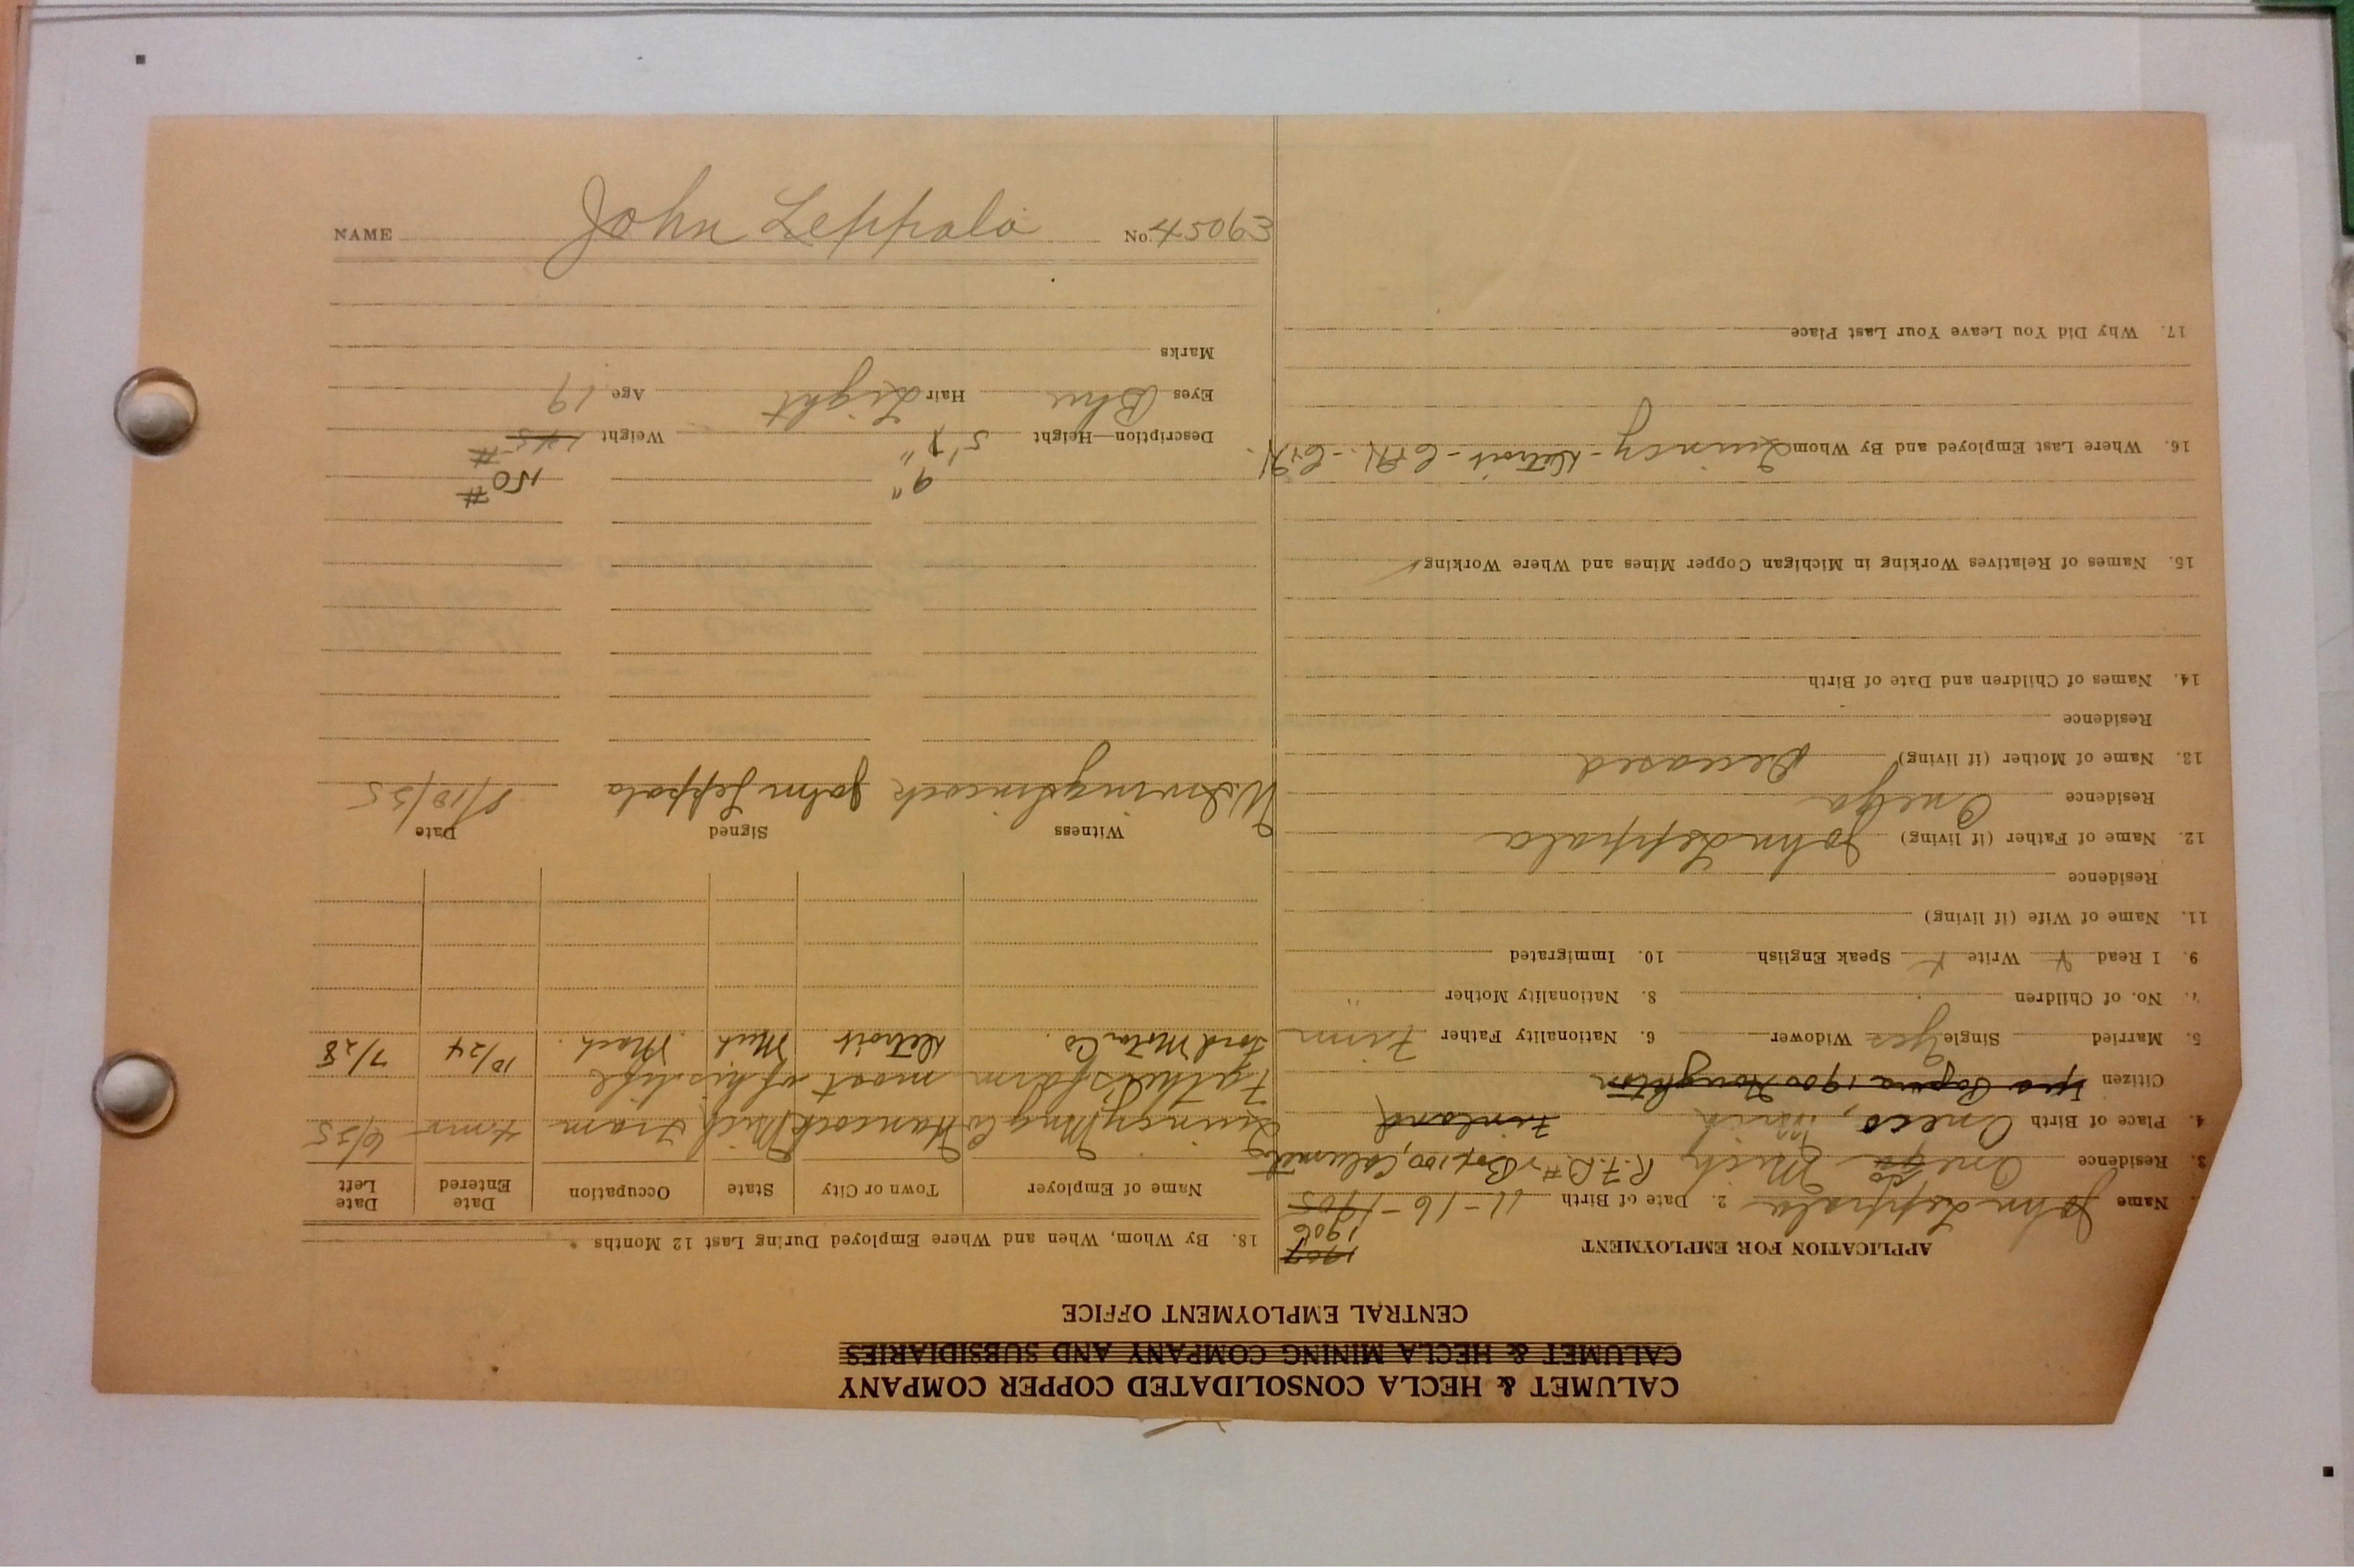 CALUMET & HECLA CONSOLIDATED COPPER COMPANY
CALUMET & HECLA MINING COMPANY AND SUBSIDIARIES
CENTRAL EMPLOYMENT OFFICE
APPLICATION FOR EMPLOYMENT
1907
1906
Name John Leppala 2. Date of Birth 11-16-1905
3. Residence Onega Mich R.F.D. # Box 100, Calumet
4. Place of Birth Oneco, Mich Finland
Citizen 1900 Houghton
5. Married Single Yes Widower 6. Nationality Father Finn
7. No. of Children 8. Nationality Mother "
9. I Read X Write X Speak English 10. Immigrated
11. Name of Wife (if living)
Residence
12. Name of Father (if living) John Leppala
Residence Onega
13. Name of Mother (if living) Deceased
Residence
14. Names of Children and Date of Birth
15. Names of Relatives Working in Michigan Copper Mines and Where Working
16. Where Last Employed and By Whom Quincy - Detroit - C+H. - C+H.
17. Why Did You Leave Your Last Place
18. By Whom, When and Where Employed During Last 12 Months
Name of Employer Town or City State Occupation Date Entered Date Left
Quincy Mng Co Hancock Mich Tram 4 mo 6/25
Fathers farm most of his life
Ford Motor Co. Detroit Mich Mach. 10/24 7/28
Witness Signed Date
John Leppala
9" 150#
Description—Height 5' 7" Weight 145#
Eyes Blue Hair Light Age 19
Marks
NAME John Leppala No. 45063